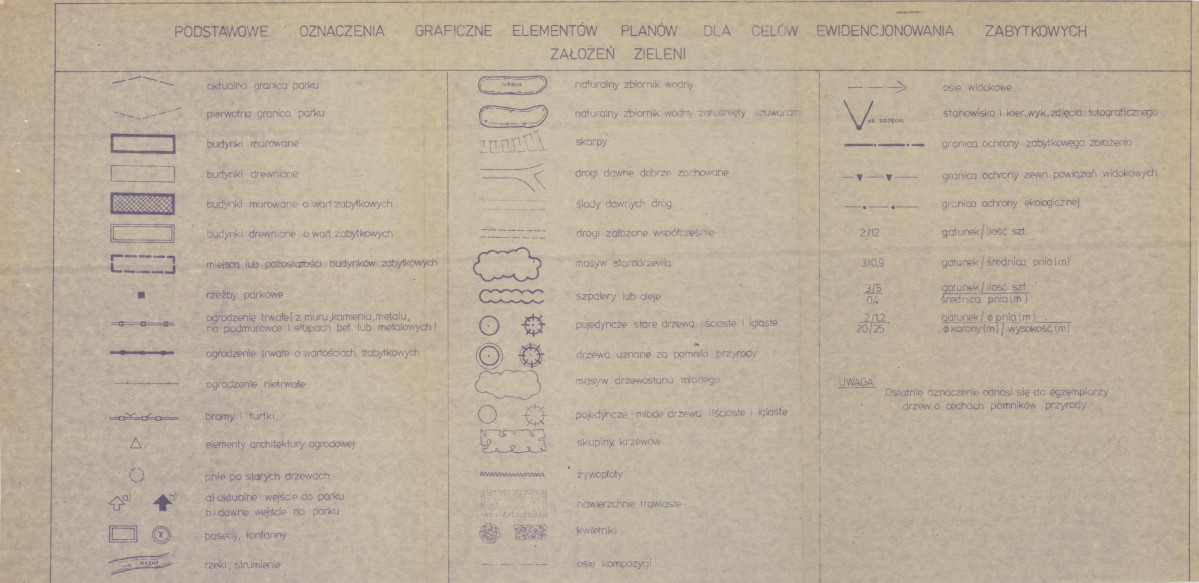 PODSTAWOWE OZNACZENIA GRAFICZNE ELEMENTÓW PLANÓW DLA CELÓW EWIDENCJONOWANIA ZABYTKOWYCH
ZAŁOŻEŃ ZIELENI
aktualna granica parku
pierwotna granica parku
budynki murowane
budynki drewniane
budynki murowane o wart. zabytkowych
budynki drewniane o wart. zabytkowych
miejsca lub pozostałości budynków zabytkowych
rzeźby parkowe
ogrodzenie trwałe ( z muru, kamienia, metalu,
na podmurówce i słupach bet. lub metalowych )
ogrodzenie trwałe o wartościach zabytkowych
ogrodzenie nietrwałe
bramy i furtki
elementy architektury ogrodowej
pnie po starych drzewach
a) b)
a) aktualne wejście do parku
b) dawne wejście do parku
baseny, fontanny
NAZWA
rzeki, strumienie
NAZWA
naturalny zbiornik wodny
naturalny zbiornik wodny zarośnięty szuwarami
skarpy
drogi dawne dobrze zachowane
ślady dawnych dróg
drogi założone współcześnie
masyw starodrzewia
szpalery lub aleje
pojedyncze stare drzewa liściaste i iglaste
drzewa uznane za pomniki przyrody
masyw drzewostanu młodego
pojedyncze młode drzewa liściaste i iglaste
skupiny krzewów
żywopłoty
nawierzchnie trawiaste
kwietniki
osie kompozycji
osie widokowe
NR ZDJĘCIA
stanowisko i kier. wyk. zdjęcia fotograficznego
granica ochrony zabytkowego założenia
granica ochrony zewn. powiązań widokowych
granica ochrony ekologicznej
2/12 gatunek / ilość szt.
3/0,9 gatunek / średnica pnia (m)
3/5 gatunek / ilość szt.
0,4 średnica pnia (m)
2/1,2 gatunek / ø pnia (m)
20/25 ø korony (m) / wysokość (m)
UWAGA
Ostatnie oznaczenie odnosi się do egzemplarzy
drzew o cechach pomników przyrody